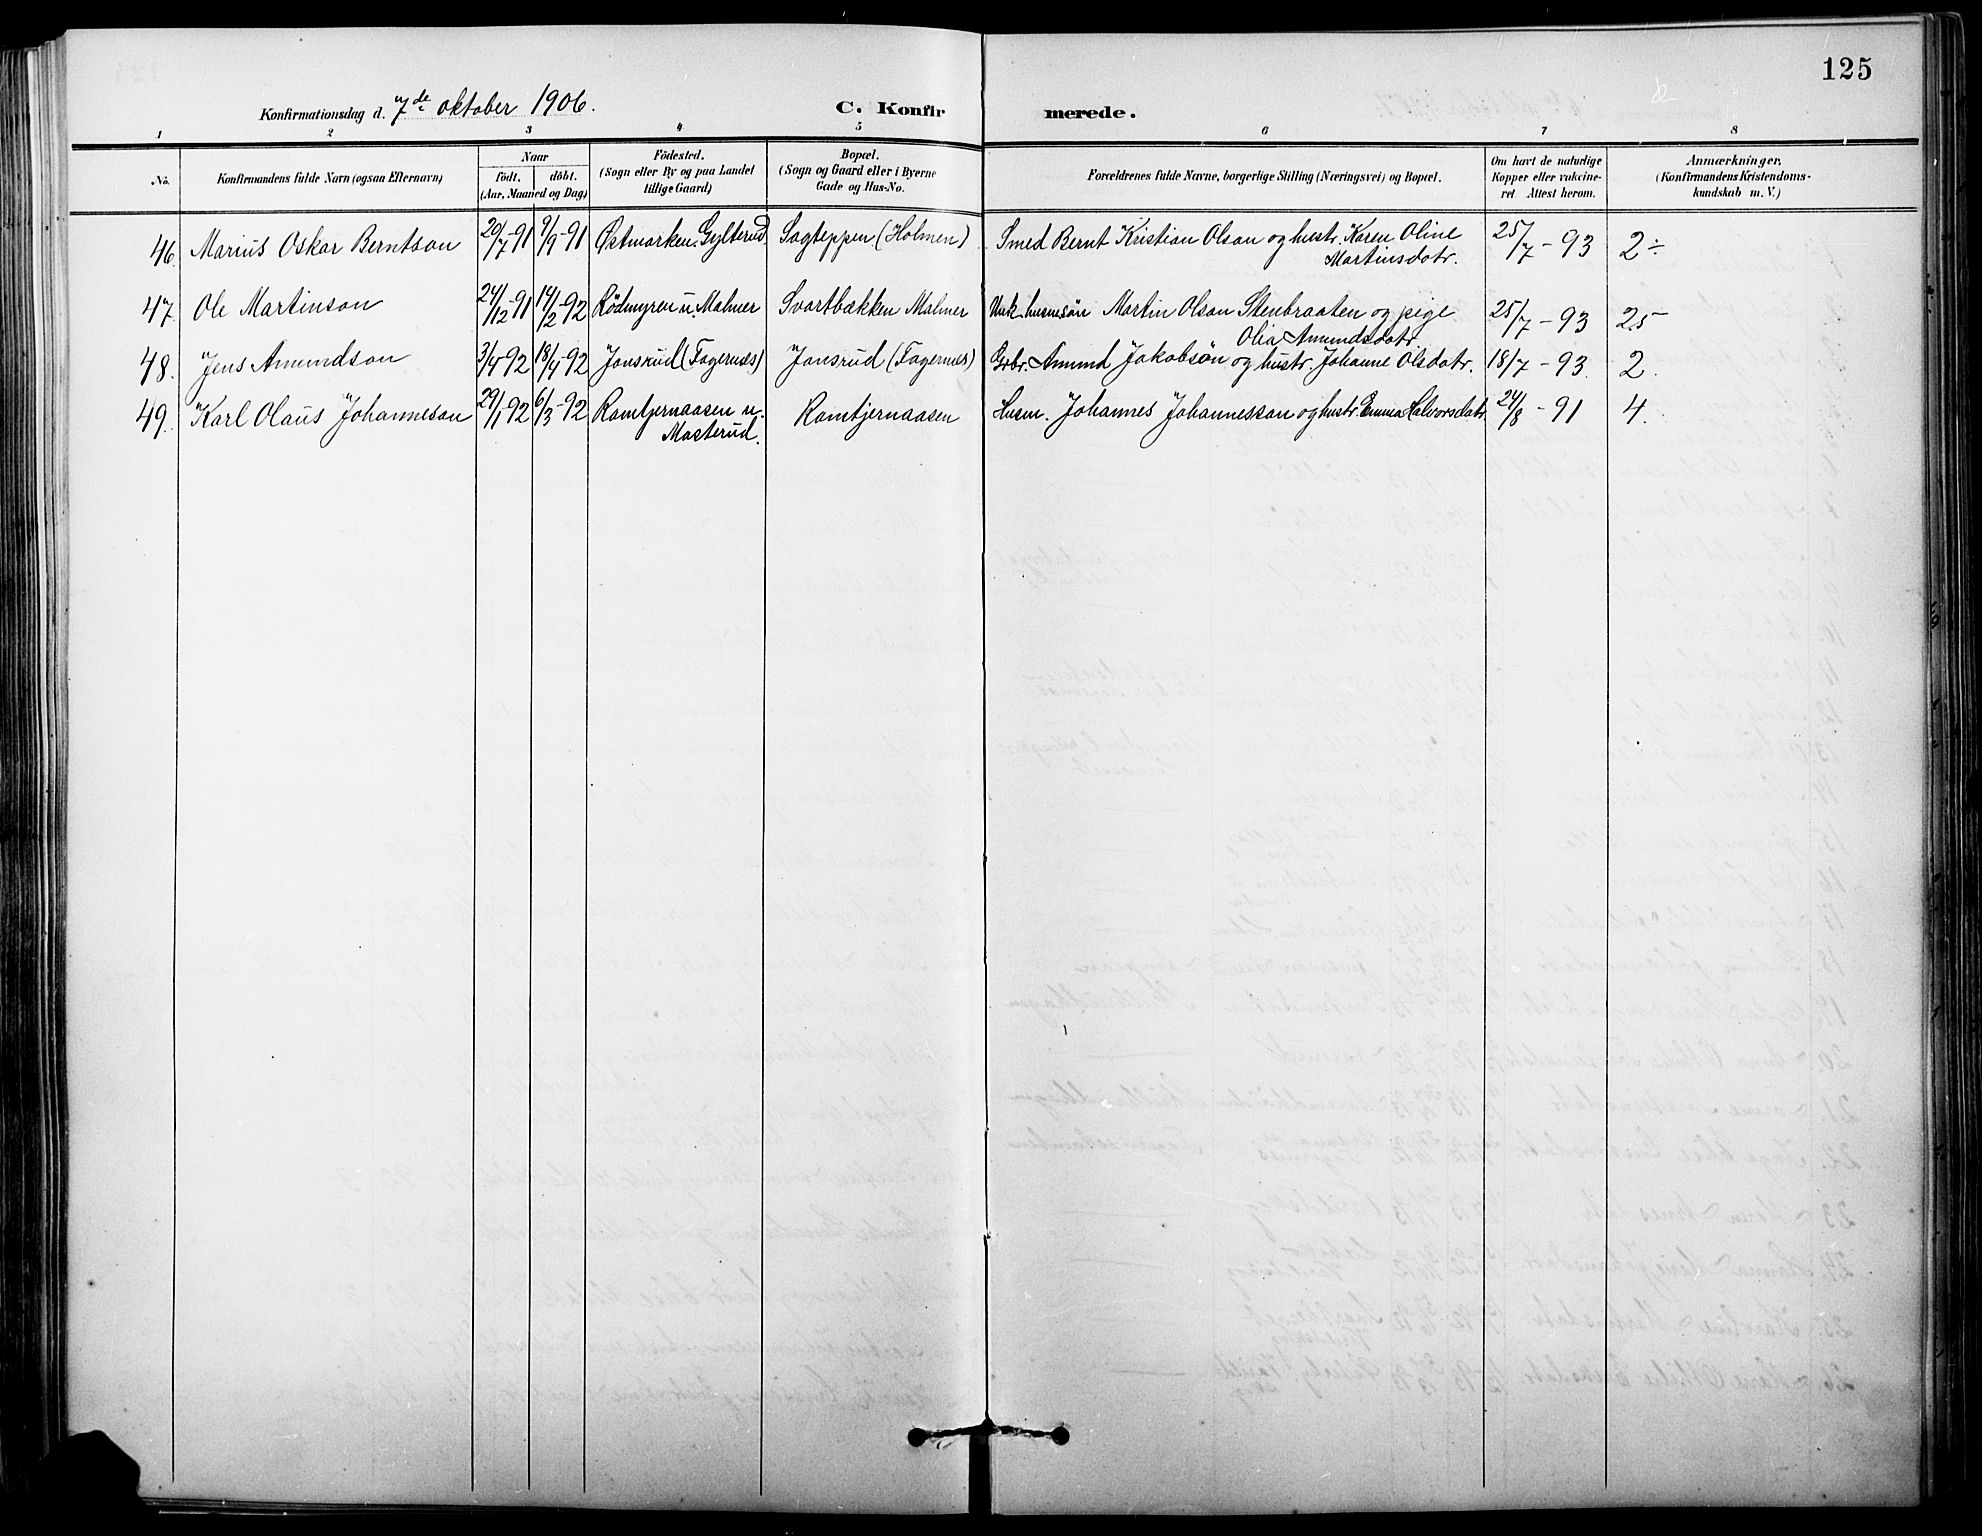 125
Konfirmationsdag d. 7de oktober 1906.
C. Konfirmerede.
1 2 3 4 5 6 7 8
No.
Konfirmandens fulde Navn (ogsaa Efternavn)
Naar
födt. döbt.
(Aar, Maaned og Dag)
Födested.
(Sogn eller By og paa Landet
tillige Gaard)
Bopæl.
(Sogn og Gaard eller i Byerne
Gade og Hus-No.
Forældrenes fulde Navne, borgerlige Stilling (Næringsvei) og Bopæl.
Om havt de naturlige
Kopper eller vakcine-
ret Attest herom.
Anmærkninger,
(Konfirmandens Kristendoms-
kundskab m. V.)
46. Marius Oskar Berntson 20/7-91 9/9-91 Østmorken. Gylterud Sagteppen (Holmen) Smed Bernt Kristian Olson og hustr. Karen Oline 25/7-93 2÷
Martinsdotr.
47. Ole Martinson 24/12-91 14/2-92 Rödmyren u. Malmer Svartbækken Malmer Unk. husmsön Martin Olson Stenbraaten og pige 25/7-93 25
Olia Amundsdotr
48. Jens Amundson 3/4-92 18/4-92 Jonsrud (Fagernæs) Jonsrud (Fagernæs) Grbr. Amund Jakobsön og hustr. Johanne Olsdotr. 18/7-93. 2.
49. Karl Olaus Johanneson 29/1-92 6/3-92 Ramtjernaasen u. Ramtjernaasen Husm. Johannes Johannesson og hustr. Emma Halvorsdotr 24/8-91 4.
Masterud.